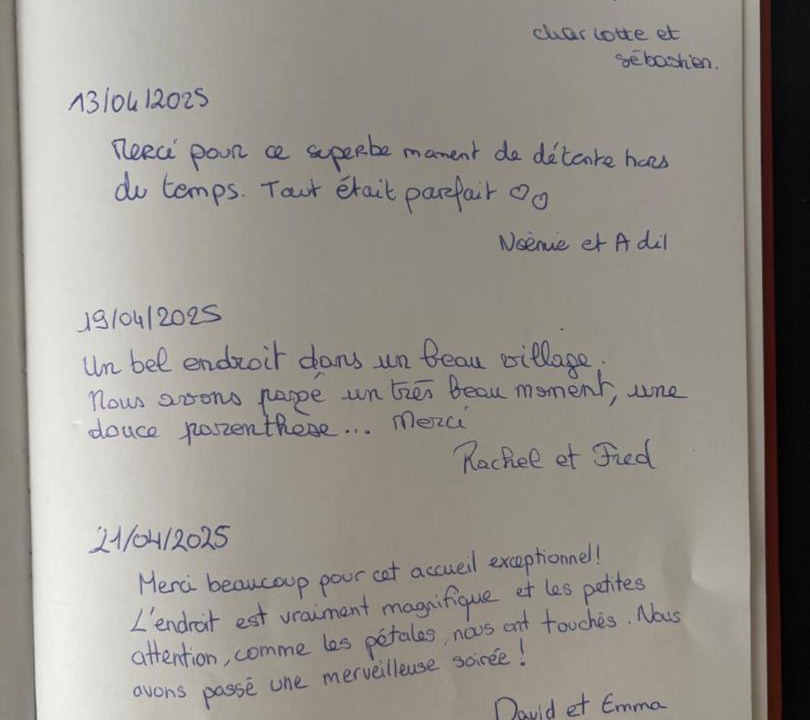 charlotte et
sébastien.
13/04/2025
Merci pour ce superbe moment de détente hors
du temps. Tout était parfait ♡♡
Noémie et Adil
19/04/2025
Un bel endroit dans un beau village.
Nous avons passé un très beau moment, une
douce parenthèse... Merci
Rachel et Fred
21/04/2025
Merci beaucoup pour cet accueil exceptionnel!
L'endroit est vraiment magnifique et les petites
attention, comme les pétales, nous ont touchés. Nous
avons passé une merveilleuse soirée!
David et Emma